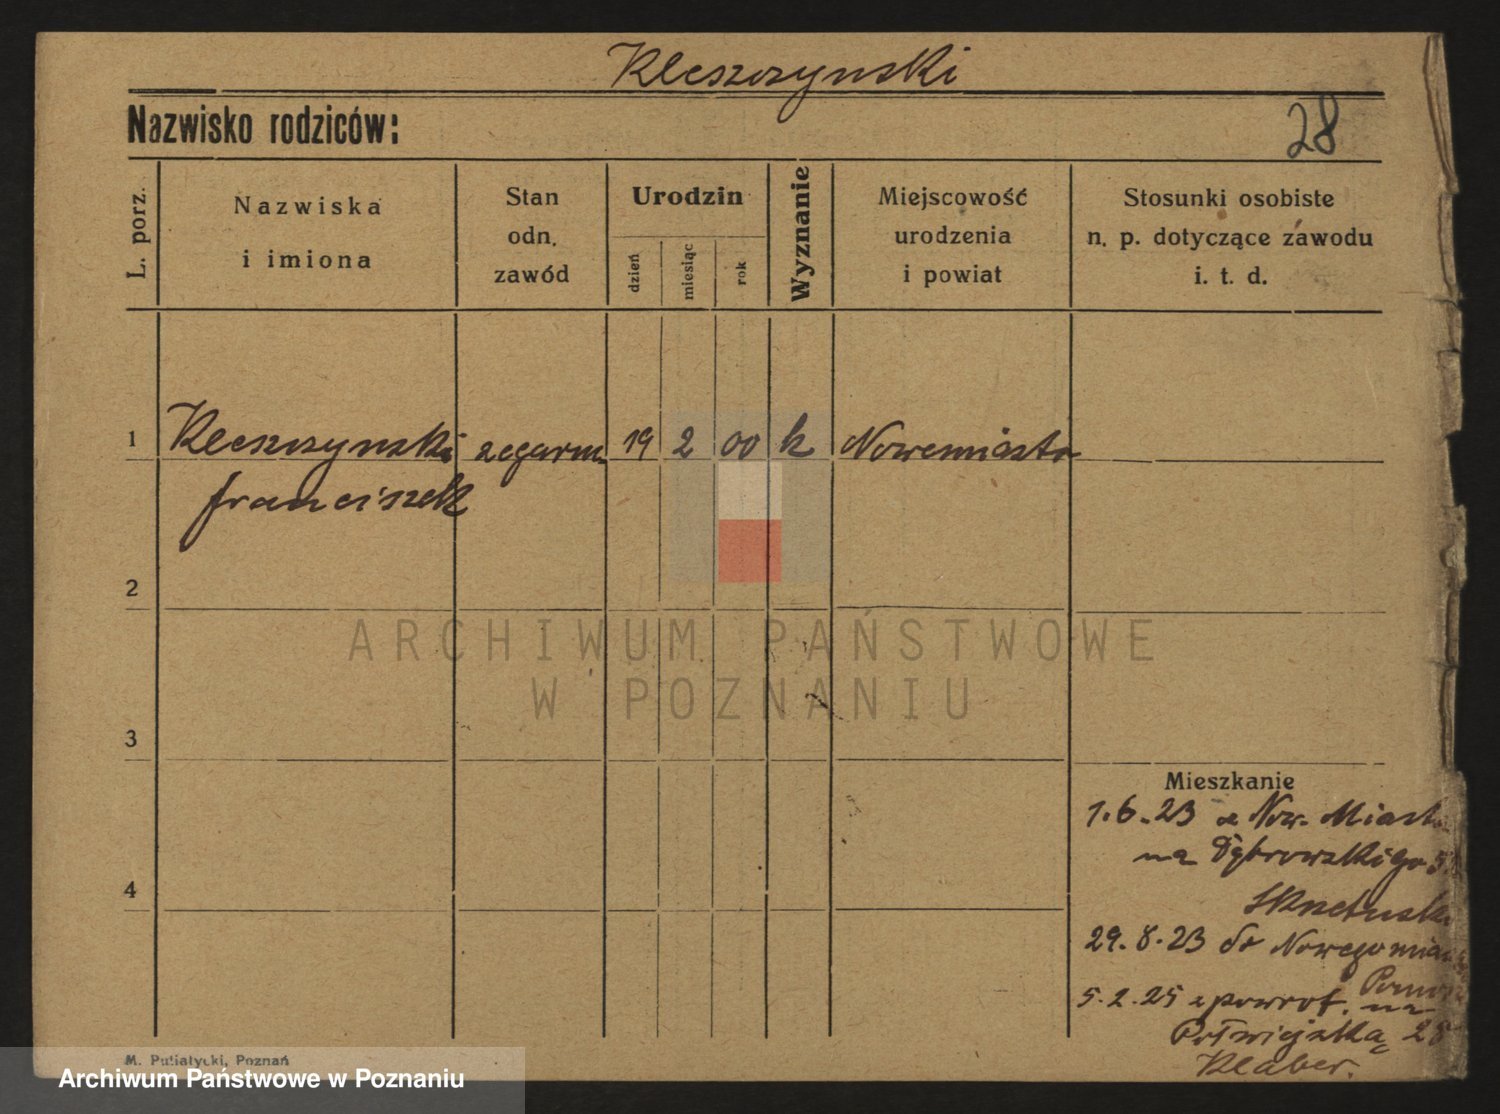 Kleszczynski
Nazwisko rodziców:
28
L. porz.
Nazwiska
i imiona
Stan
odn.
zawód
Urodzin
dzień
miesiąc
rok
Wyznanie
Miejscowość
urodzenia
i powiat
Stosunki osobiste
n. p. dotyczące zawodu
i. t. d.
1
Kleszczynski zegarm. 19 2 00 k Nowemiasto
franciszek
2
ARCHIWUM PAŃSTWOWE
W POZNANIU
3
Mieszkanie
1.6.23 z Now. Miasta
na Dąbrowskiego
4
29.8.23 do Nowegomia
5.2.25 z powrot. na
Półwiejską 28
Klaber.
M. Putiatycki, Poznań
Archiwum Państwowe w Poznaniu